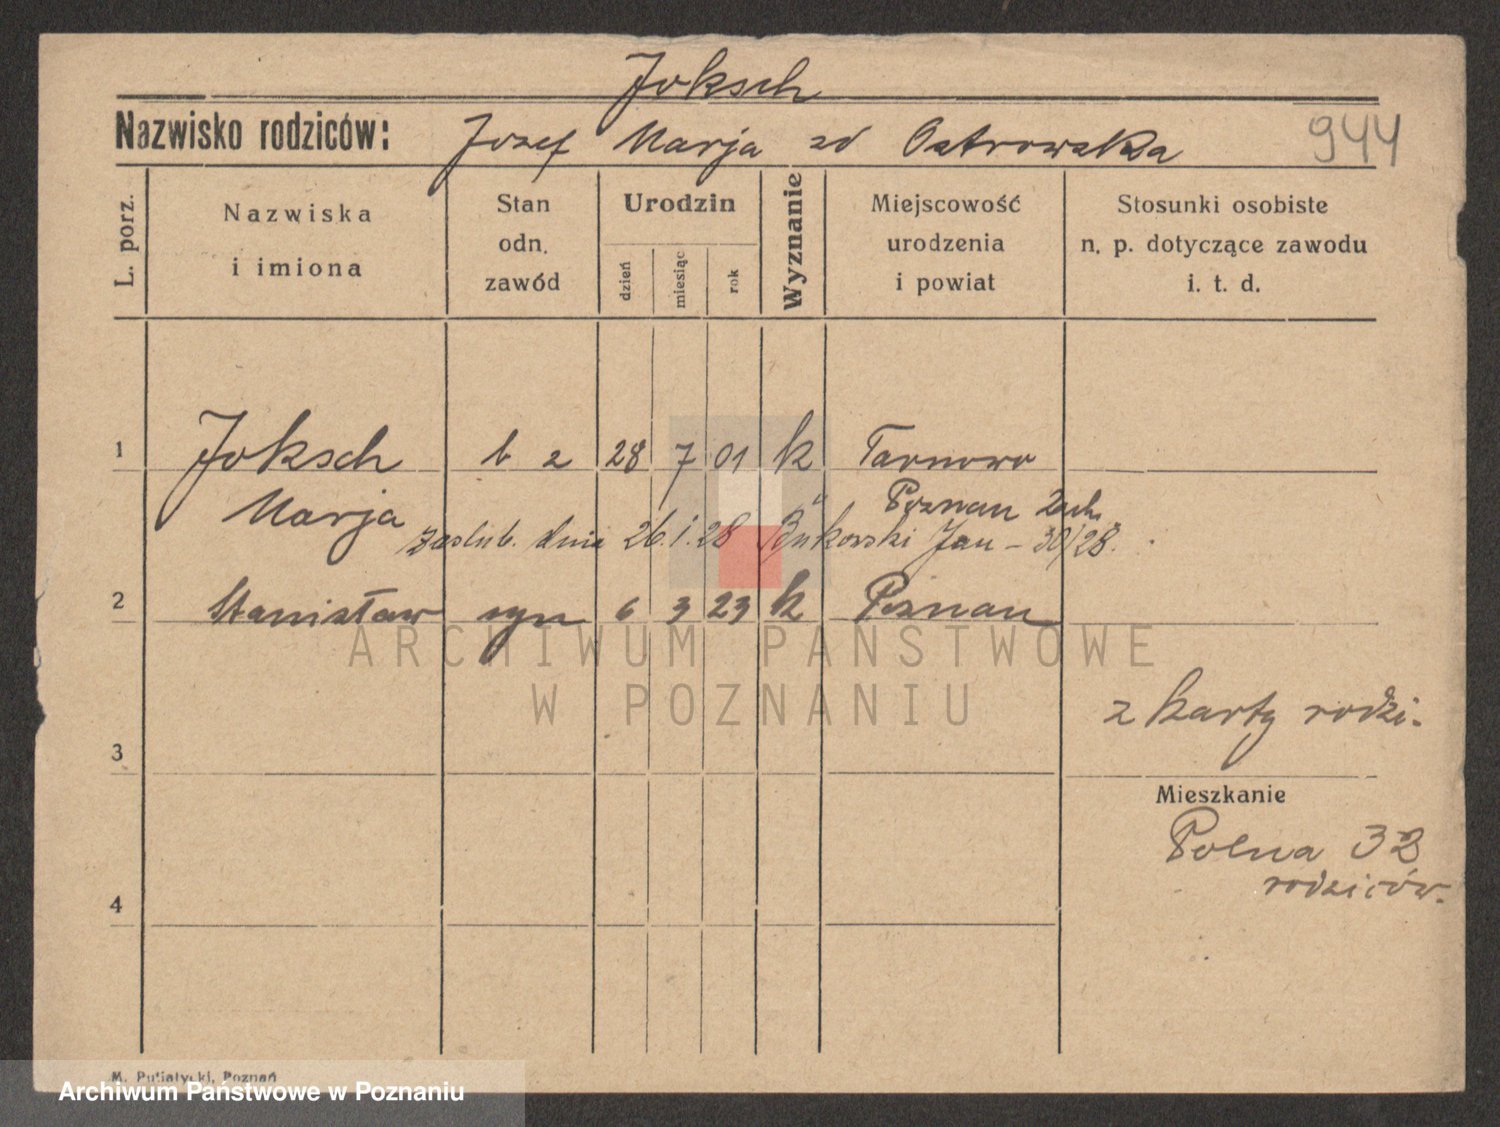 Joksch
Nazwisko rodziców: Jozef Marja zd Ostrowska 944
L. porz.
Nazwiska
i imiona
Stan
odn.
zawód
Urodzin
dzień
miesiąc
rok
Wyznanie
Miejscowość
urodzenia
i powiat
Stosunki osobiste
n. p. dotyczące zawodu
i. t. d.
1 Joksch b z 28 7 01 k Tarnowo
Marja Poznan Zach.
zaslub. dnia 26.1.28 Bukowski Jan - 30/28.
2 Stanisław syn 6 3 23 k Poznan
z karty rodzi.
3
Mieszkanie
Polna 32
rodziców.
4
M. Putiatycki, Poznań
ARCHIWUM PAŃSTWOWE
W POZNANIU
Archiwum Państwowe w Poznaniu